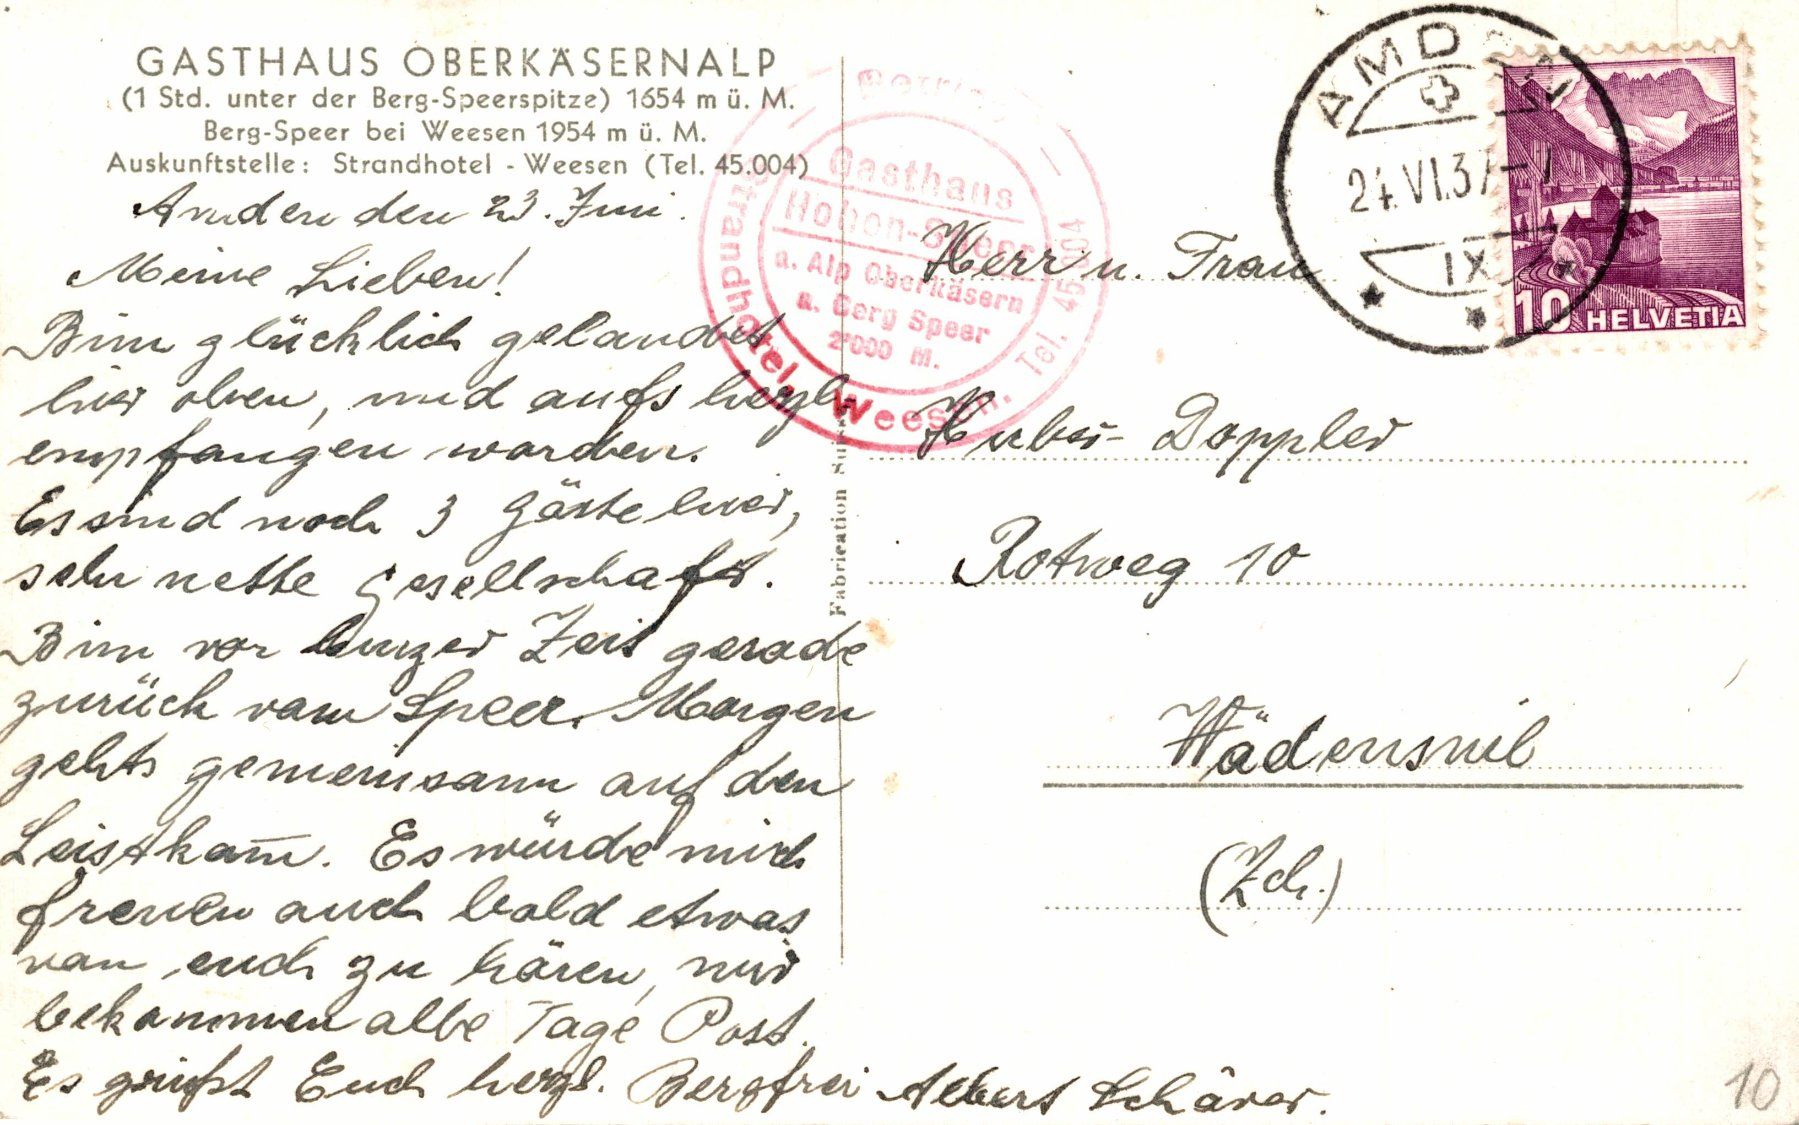 GASTHAUS OBERKÄSERNALP
(1 Std. unter der Berg-Speerspitze) 1654 m ü. M.
Berg-Speer bei Weesen 1954 m ü. M.
Auskunftstelle: Strandhotel - Weesen (Tel. 45.004)
Amden den 23. Juni.
Meine Lieben!
Bin glücklich gelandet
hier oben, und aufs herzl.
empfangen worden.
Es sind noch 3 Gäste hier,
sehr nette Gesellschaft.
Bin vor kurzer Zeit gerade
zurück vom Speer. Morgen
gehts gemeinsam auf den
Leistkam̅. Es würde mich
freuen auch bald etwas
von euch zu hören, wir
bekommen alle Tage Post.
Es grüßt Euch herzl. Bergfrei Albert Schärer.
Gasthaus
Hohen-Speer
a. Alp Oberkäsern
a. Berg Speer
2'000 M.
Strandhotel, Weesen. Tel. 45.004
Fabrication
AMDEN
24.VI.37-7
IX
10 HELVETIA
Herr u. Frau
Huber-Doppler
Rotweg 10
Wädenswil
(Zch.)
10